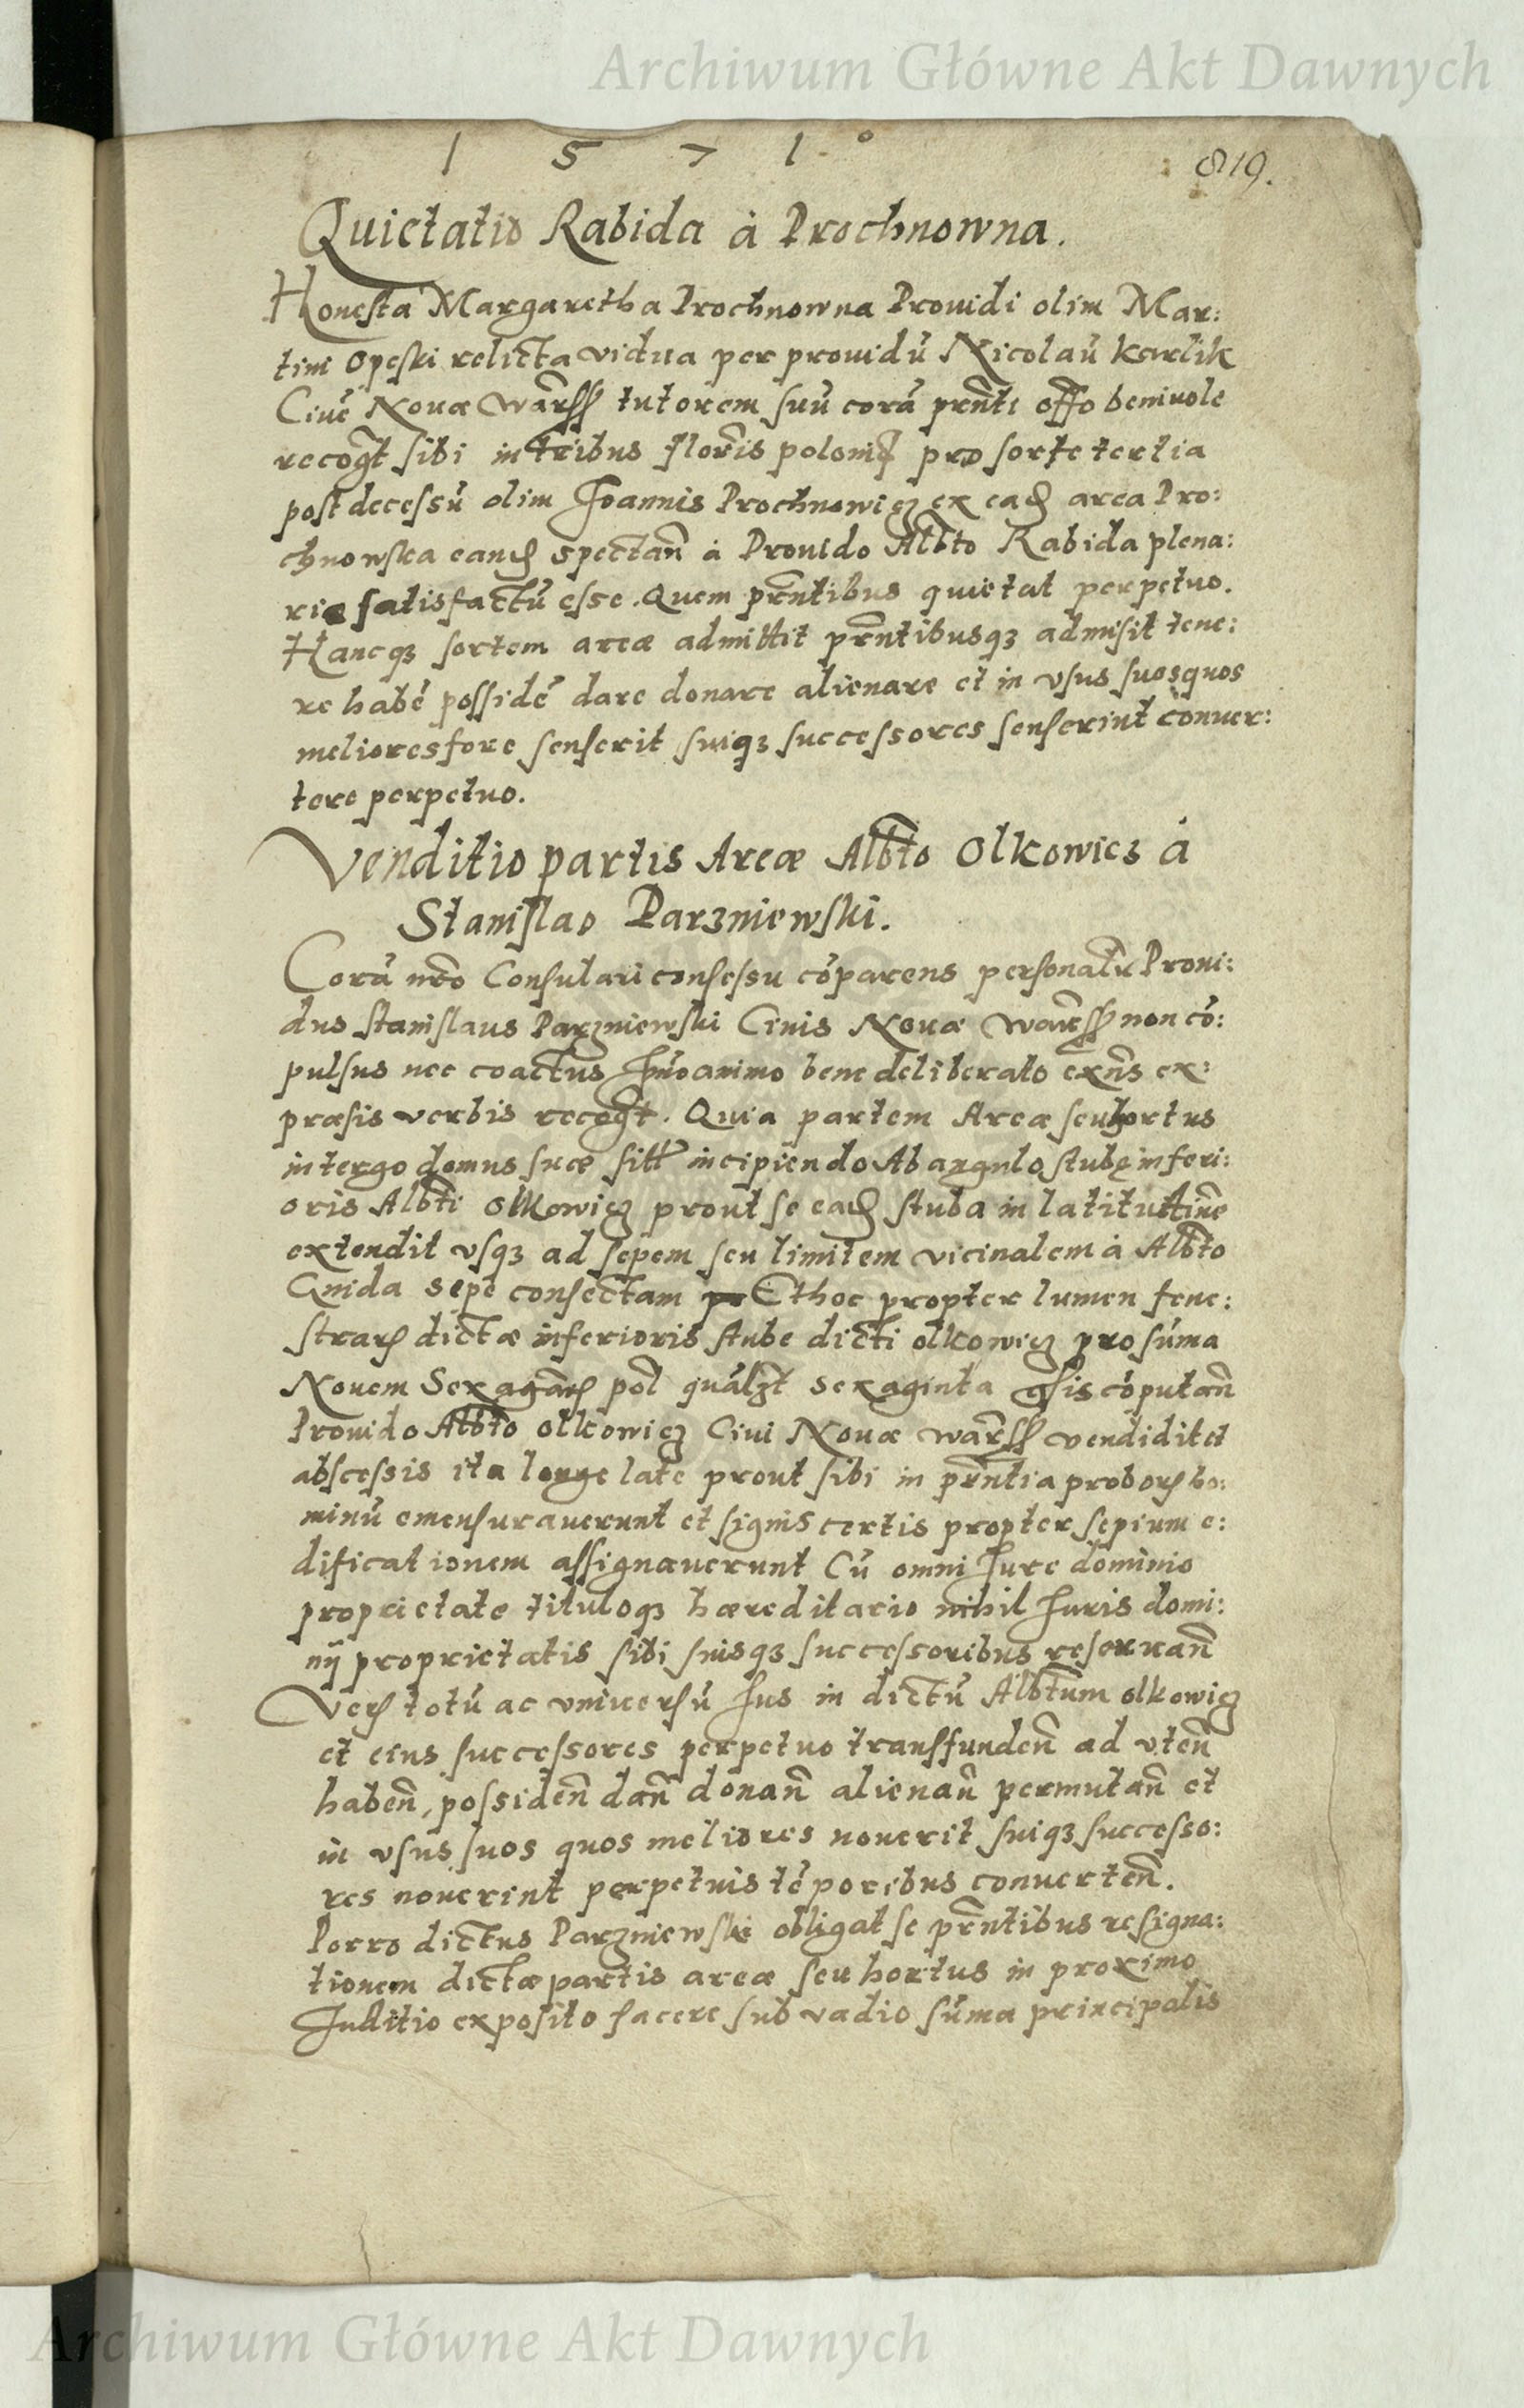 Archiwum Główne Akt Dawnych
1 5 7 1°
819.
Quietatio Rabida à Prochnowna.
Honesta Margaretha Prochnowna Prouidi olim Mar:
tini Opeski relicta vidua per prouidū Nicolaū Karlik
Ciuē Nouæ Warss tutorem suū corā prn̄ti offo beniuole
recog̃t sibi in tribus flor̃is poloni pro sorte tertia
post decessū olim Joannis Prochnowicz ex ead area Pro:
chnowska eand spectan̄ à Prouido Alb̃to Rabida plena:
rie satisfactū esse. Quem prn̄tibus quietat perpetuo.
Hancqz sortem areæ admittit prn̄tibusqz admisit tene:
re habē possidē dare donare alienare et in vsus suos quos
meliores fore senserit suiqz successores senserint conuer:
tere perpetuo.
Venditio partis Areæ Alb̃to Olkowicz à
Stanislao Parzniewski.
Corā nr̃o Consulari consessu cōparens personalr̃ Proui:
dus Stanislaus Parzniewski Ciuis Nouæ Warss non cō:
pulsus nec coactus Jmo animo bene deliberato exn̄s ex:
præsis verbis recog̃t. Quia partem Areæ seu hortus
in tergo domus suæ sitt incipiendo Ab angulo stubę inferi:
oris Alb̃ti Olkowicz prout se ead stuba in latitudine
extendit vsqz ad sepem seu limitem vicinalem à Alb̃to
Gnida sepe consectam Et hoc propter lumen fene:
strar dictæ inferioris stube dicti olkowicz pro sūma
Nouem Sexagar pol quāl̃zt sexaginta gr̃is cōputan̄
Prouido Alb̃to olkowicz Ciui Nouæ Warss vendidit et
abscessis ita longe late prout sibi in prn̄tia probor ho:
minū emensurauerunt et signis certis propter sepium e:
dificationem assignauerunt Cū omni Jure dominio
proprietate tituloqz hæreditario nihil Juris domi:
nij proprietatis sibi suisqz successoribus reseruan̄
Ver totū ac vniuersū Jus in dictū Alb̃tum olkowicz
et eius successores perpetuo transfunden̄ ad vten̄
haben̄, possiden̄ dan̄ donan̄ alienan̄ permutan̄ et
in vsus suos quos meliores nouerit suiqz successo:
res nouerint perpetuis tēporibus conuerten̄.
Porro dictus Parzniewski obligat se prn̄tibus resigna:
tionem dictæ partis areæ seu hortus in proximo
Juditio exposito facere sub vadio sūma principalis
Archiwum Główne Akt Dawnych